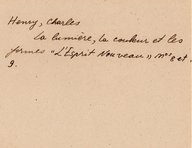 Henry, Charles
La lumière, la couleur et les
formes "L'Esprit Nouveau" Nos 8 et
9.